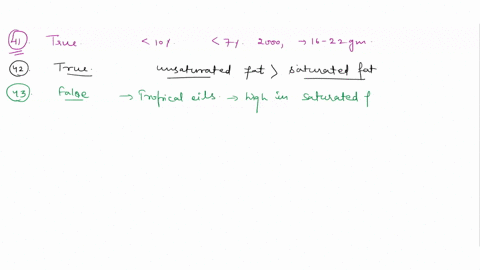 41) True < 10% < 7% 2000, → 16-22 gm.
42 True. unsaturated fat > saturated fat
43 False → Tropical oils. → high in saturated f